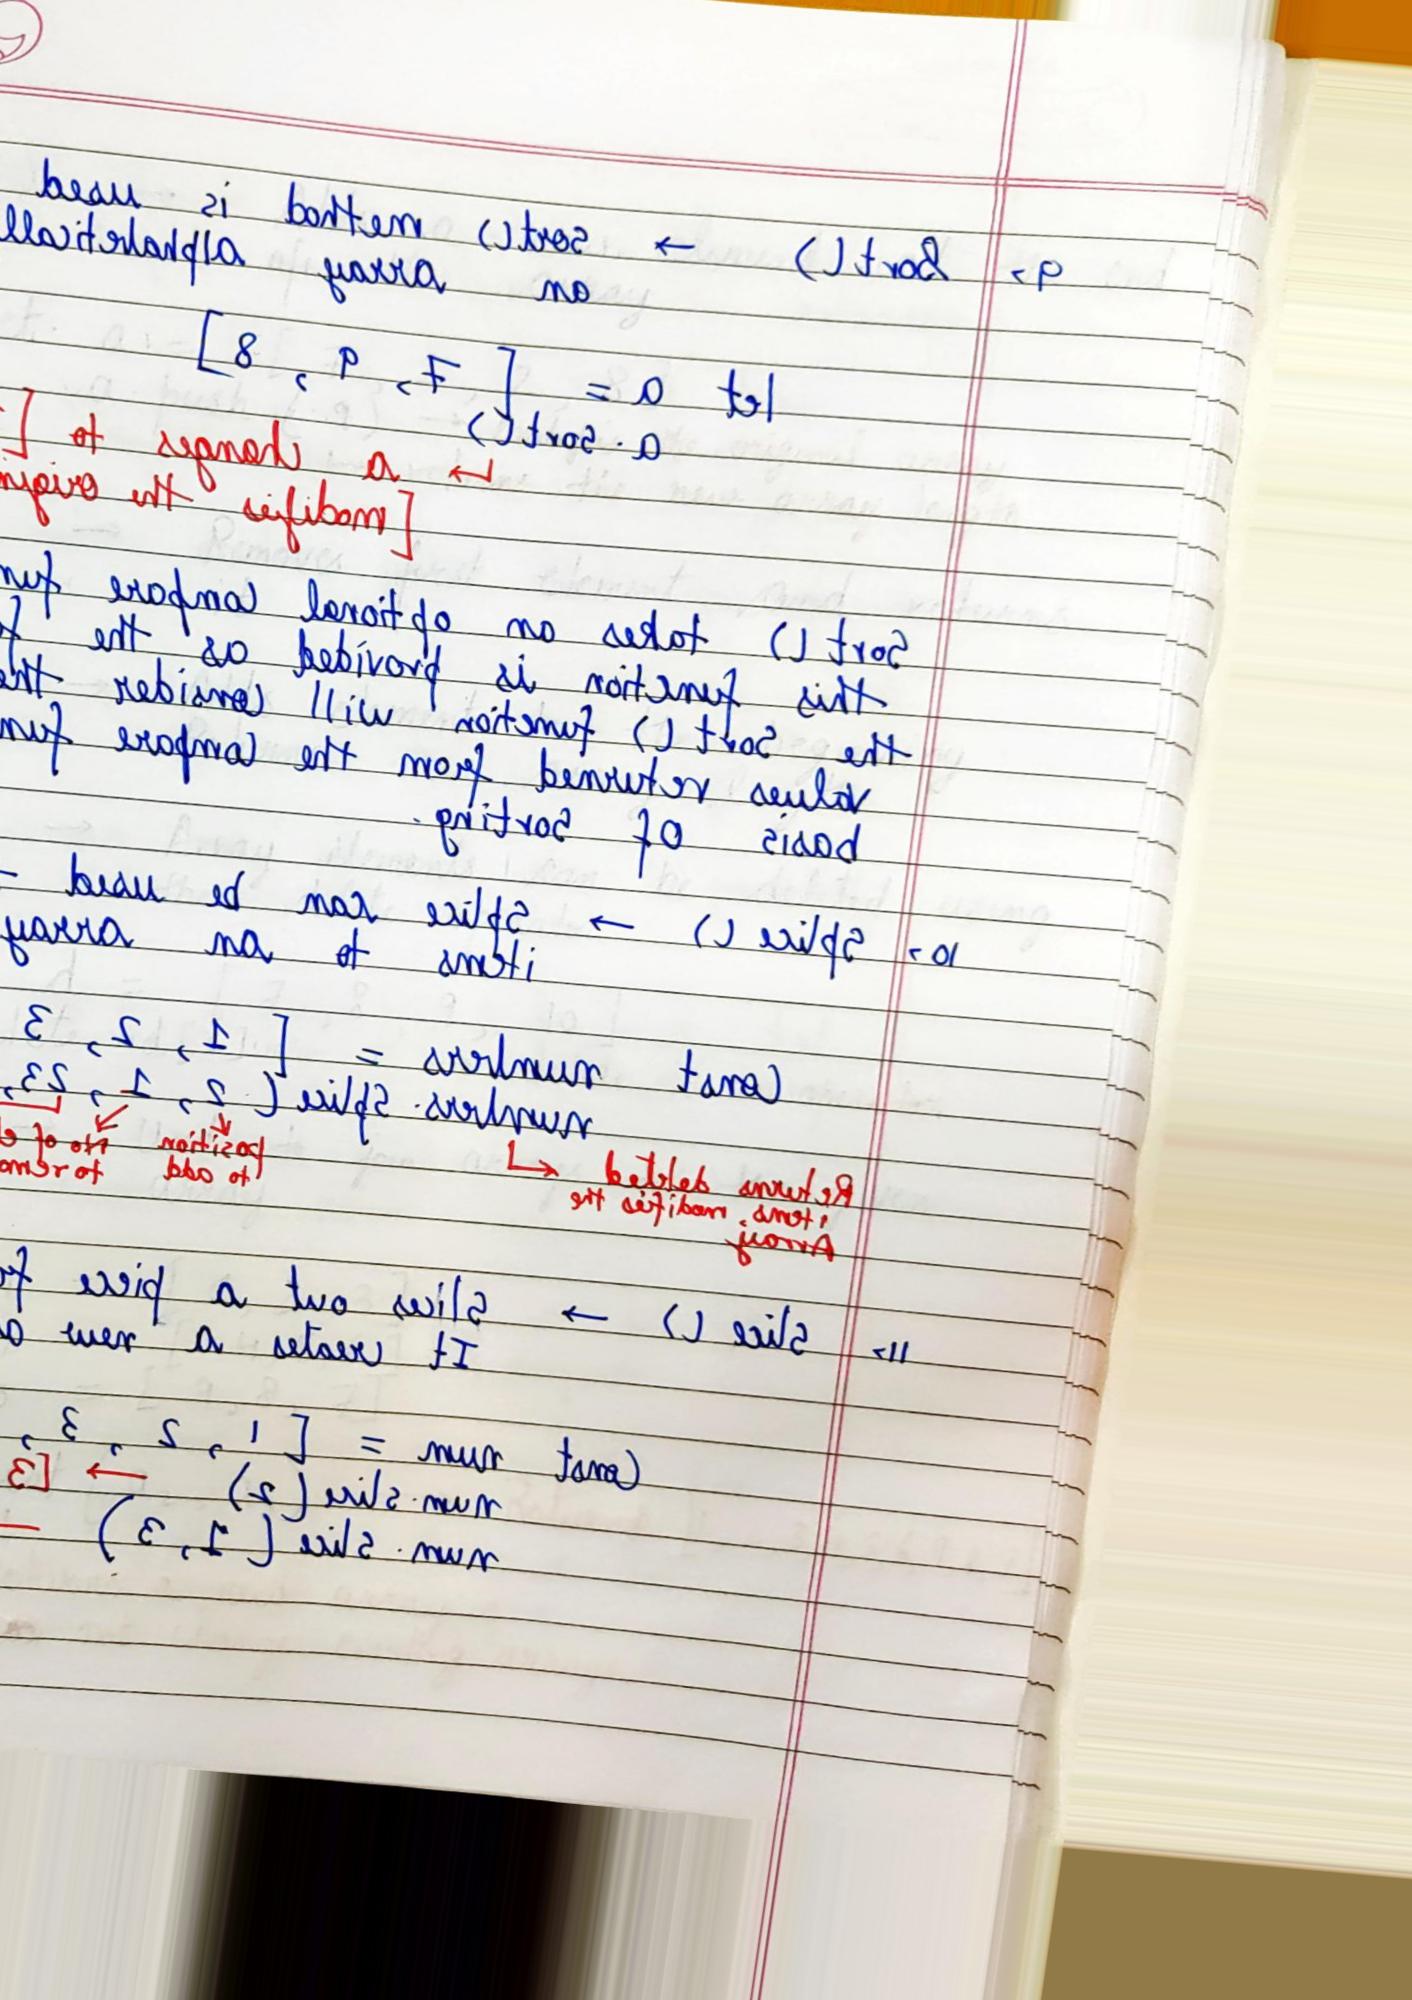 9> Sort() → Sort() method is used
an array alphabeticall
let a = [7, 9, 8]
a.Sort()
↳ a changes to [
[modifies the origin
Sort() takes an optional compare fun
this function is provided as the f
the Sort() function will consider the
values returned from the compare fun
basis of Sorting.
10> Splice() → Splice can be used -
items to an array
Const numbers = [1, 2, 3
numbers.Splice(2, 1, 23,
position to add
No of e to remo
Returns deleted items, modifies the Array
11> Slice() → Slices out a piece fr
It creates a new a
Const num = [1, 2, 3,
num.slice(2) → [3
num.slice(1, 3) -